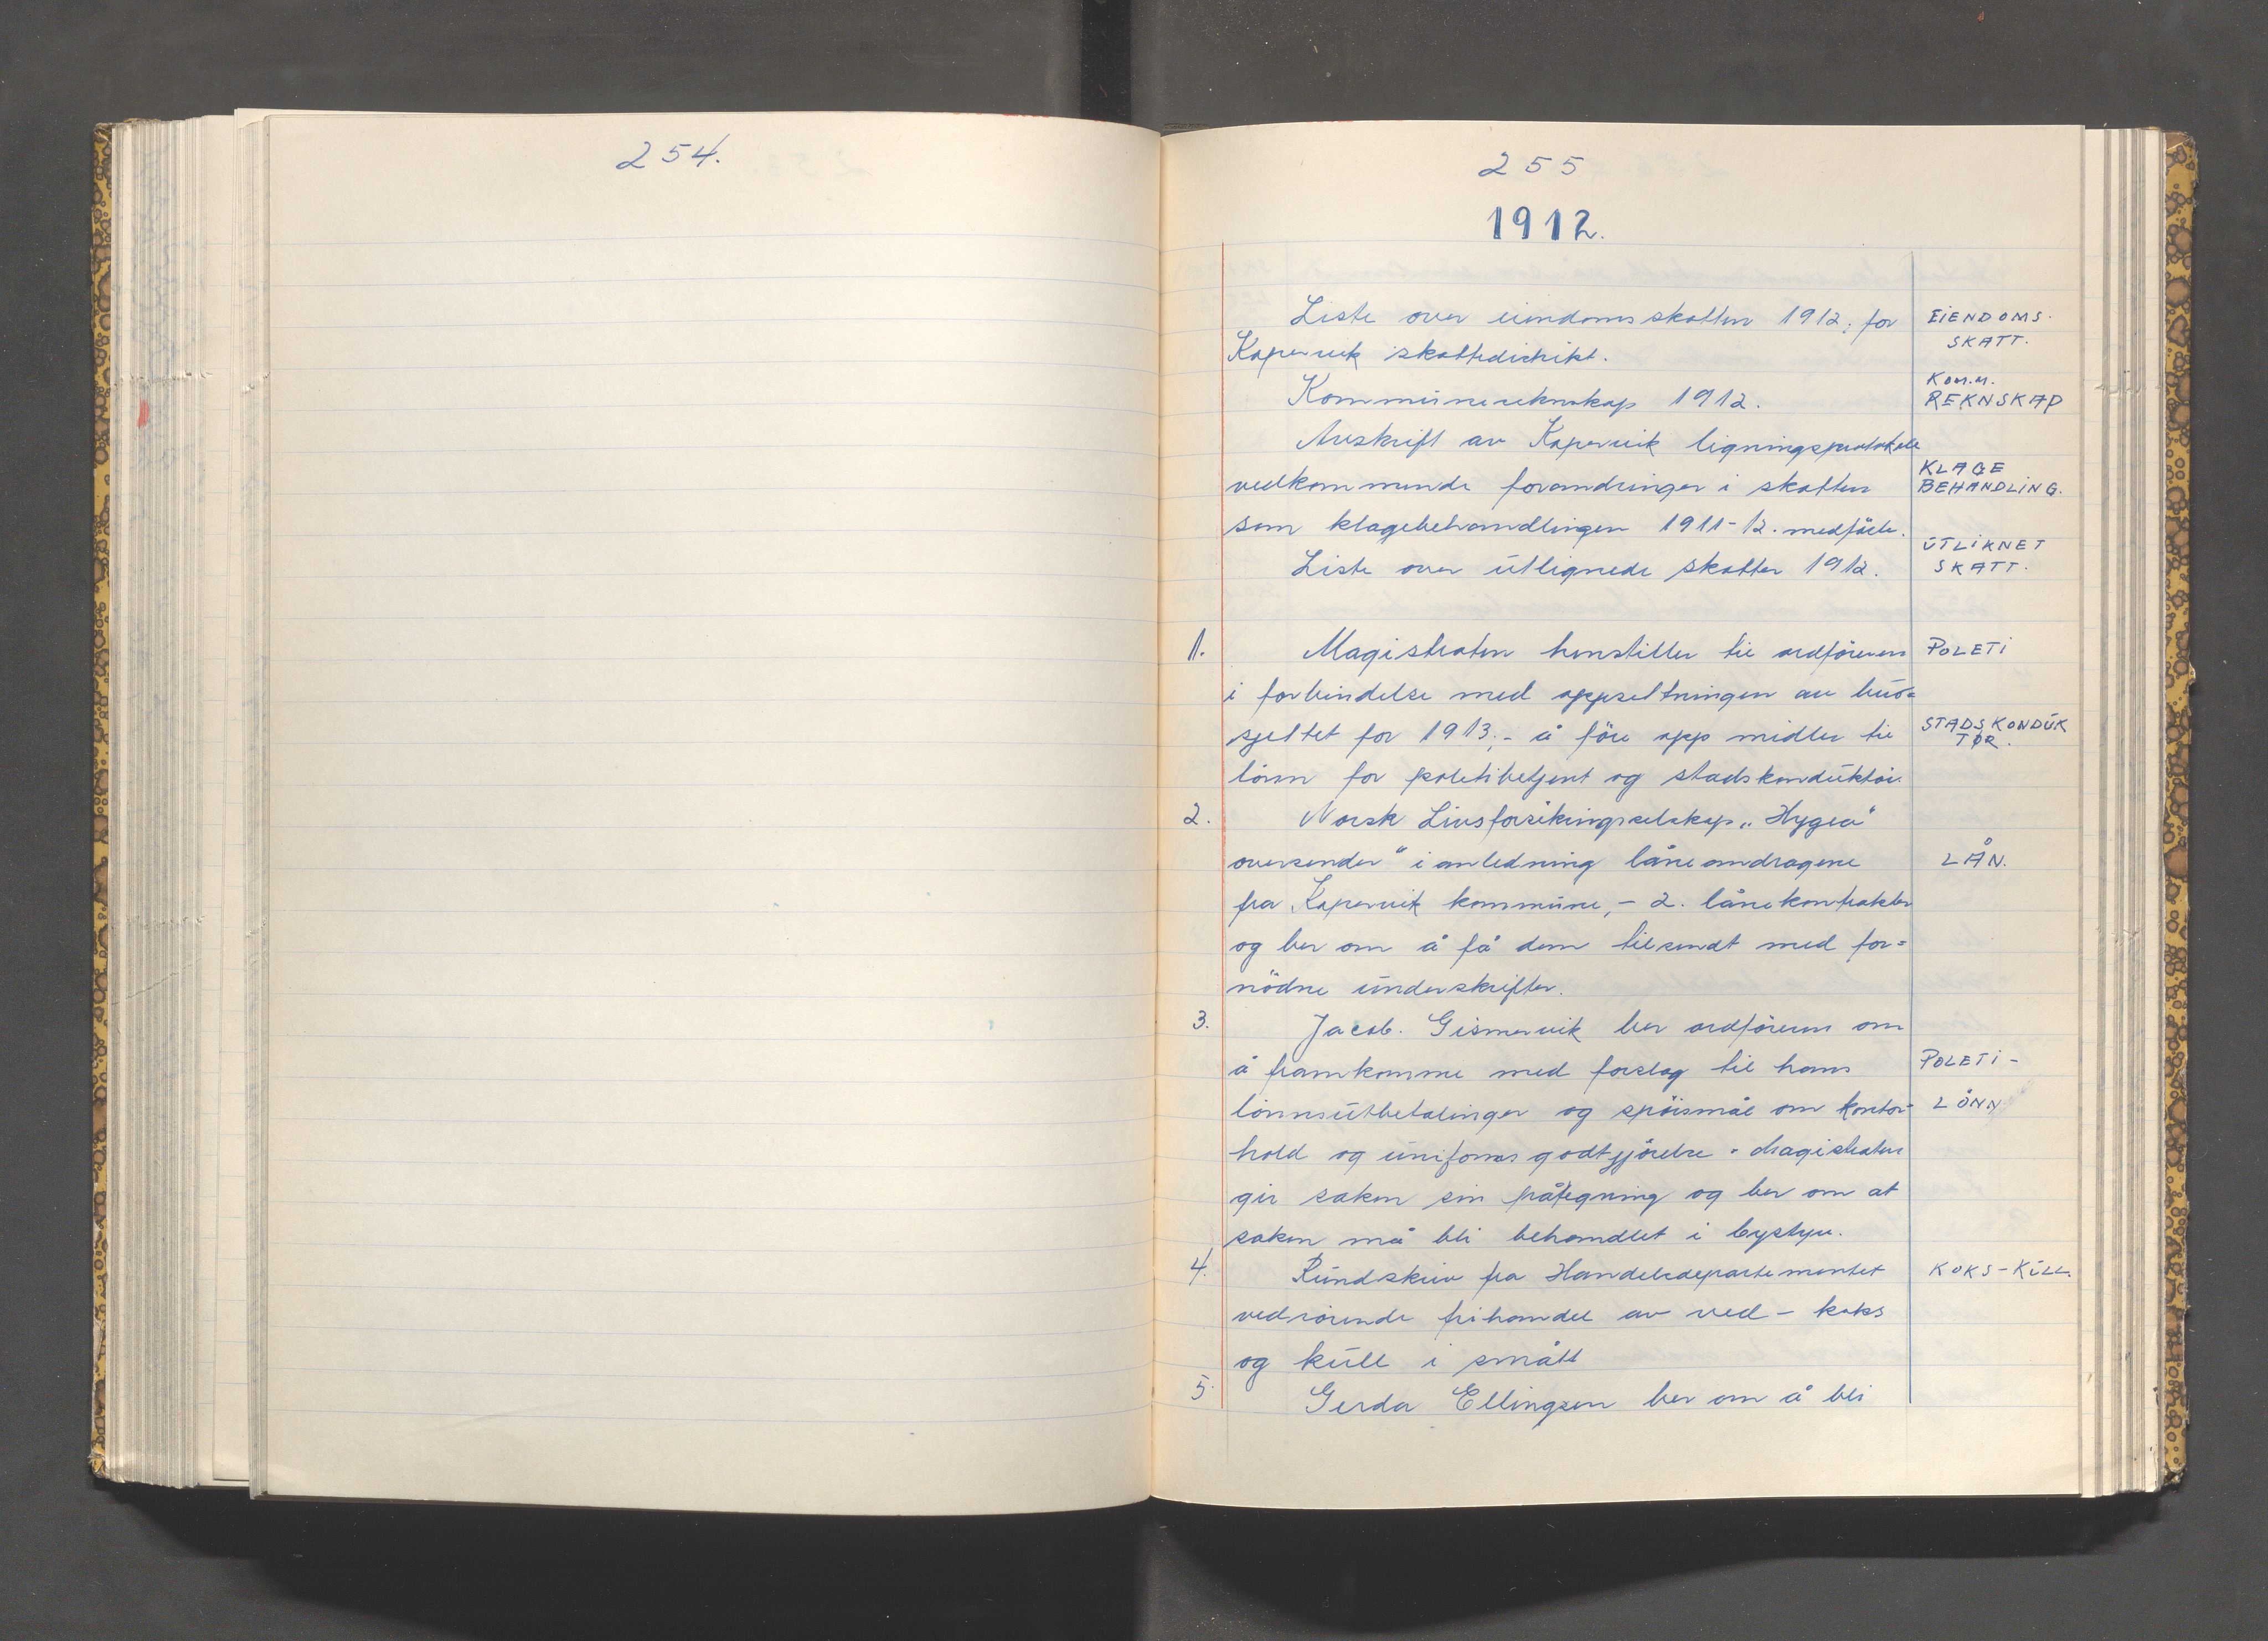 254.
255
1912.
Liste over eiendomsskatten 1912; for
EIENDOMS-
SKATT.
Kopervik skattedistrikt.
Kommunerekneskap 1912.
KOM.M.
REKNSKAP
Avskrift av Kopervik ligningsprotokoll
vedkommende forandringer i skatten
KLAGE
BEHANDLING.
som klagebehandlingen 1911-12. medførte.
Liste over utlignede skatter 1912.
UTLIKNET
SKATT.
1. Magistraten henstiller til ordføreren
POLETI
i forbindelse med oppsettningen av bud=
sjettet for 1913;- å føre opp midler til
STADSKONDUK
TØR.
lønn for poletibetjent og stadskonduktør.
2. Norsk Livsforsikringsselskap „Hygea"
oversender" i anledning låneandragene
LÅN.
fra Kopervik kommune,- 2. lånekontrakter
og ber om å få dem tilsendt med for=
nödne underskrifter.
3. Jacob. Gismervik ber ordføreren om
å framkomme med forslag til hans
POLETI-
lönnsutbetalinger og spöismål om kontor-
LÖNN
hold og uniforms godtgjörelse. Magistraten
gir saken sin påtegning og ber om at
saken må bli behandlet i bystyre.
4. Rundskriv fra Handelsdepartementet
KOKS-KULL.
vedrörende frihandel av ved- koks
og kull i smått
5. Gerda Ellingsen ber om å bli